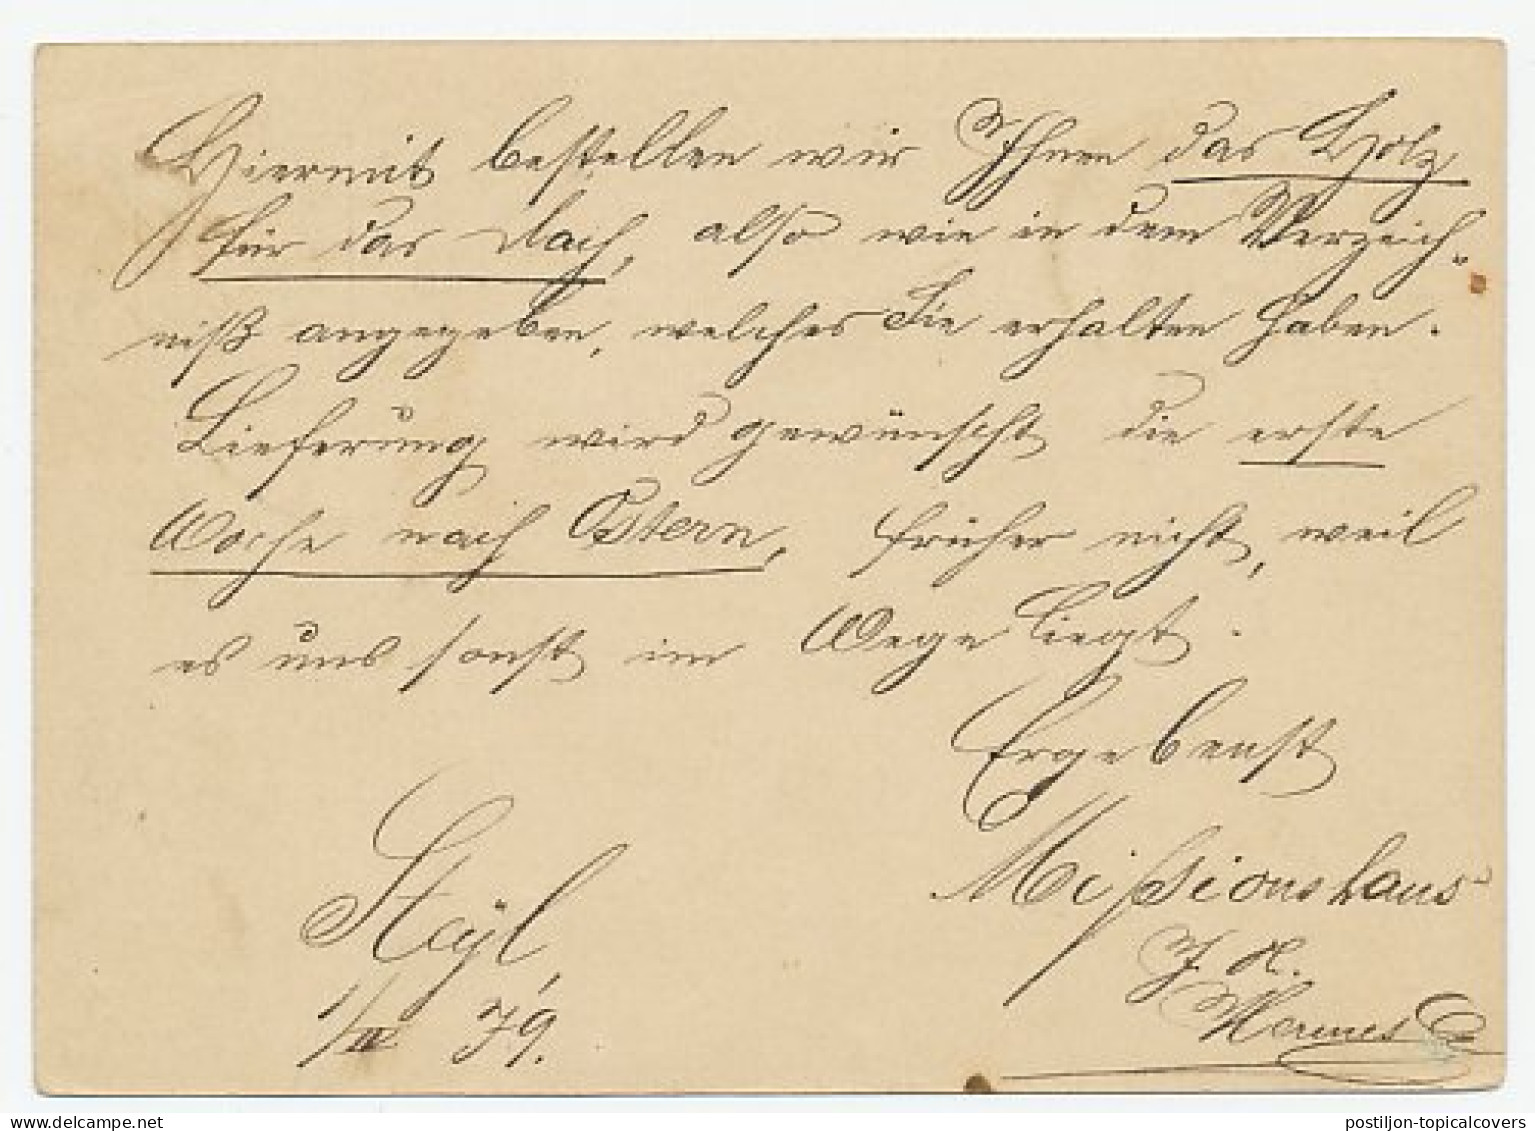 Hiermit bestellen wir Ihnen das Holz
für das Dach, also wie in dem Verzeich-
niß angegeben, welches Sie erhalten haben.
Lieferung wird gewünscht die erste
Woche nach Ostern, früher nicht, weil
es uns sonst im Wege liegt.
Ergebenst
Missionshaus
Steyl,
1/II 79.
Hermes
postiljon.net
postiljon-topicalcovers